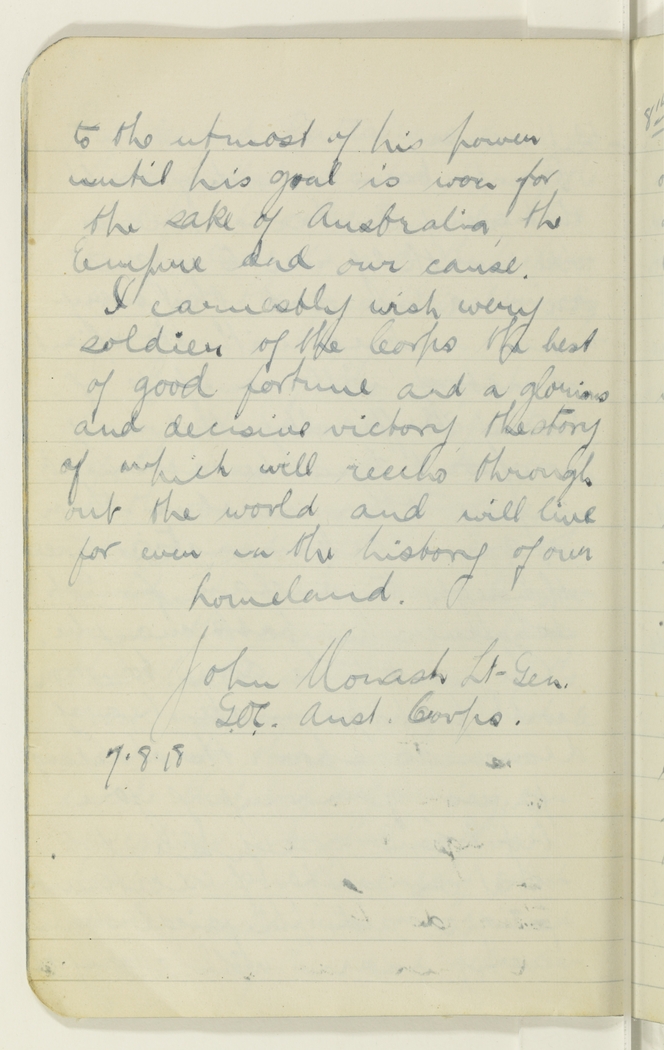 to the utmost of his power
until his goal is won for
the sake of Australia, the
Empire and our cause.
I earnestly wish every
soldier of the Corps the best
of good fortune and a glorious
and decisive victory the story
of which will reecho through
out the world and will live
for ever in the history of our
homeland.
John Monash Lt-Gen.
GOC. Aust. Corps.
7.8.18
8th